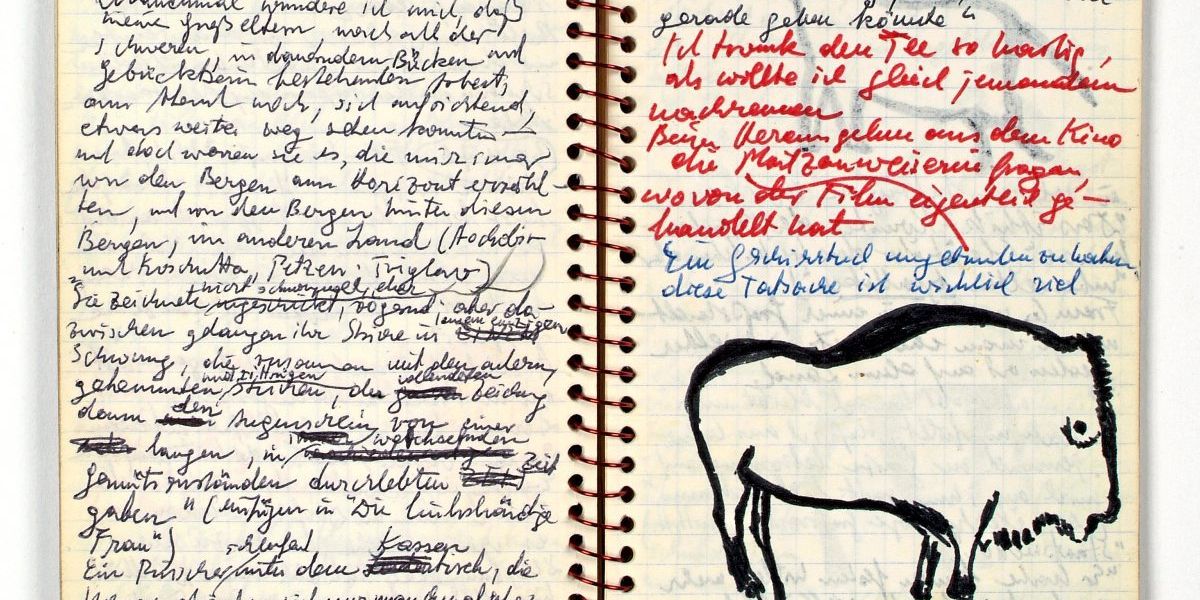 wundere ich mich, daß
meine Großeltern, nach all der
schweren, in dauerndem Bücken und
Gebücktsein bestehenden Arbeit,
am Abend noch, sich aufrichtend,
etwas weiter weg sehen konnten –
und doch waren sie es, die mir immer
von den Bergen am Horizont erzähl-
ten, und von den Bergen hinter diesen
Bergen, im anderen Land (Hochobir
und Koschutta, Petzen; Triglav)
"Sie zeichnete ungeschickt, zögernd, aber da-
zwischen gelangen ihr Striche in einem einzigen
Schwung, die zusammen mit den andern,
gehemmten, Strichen, der Zeichnung
dann den Augenschein von einer
langen, in wechselnden
Gemütszuständen durchlebten Zeit
gaben" (einfügen in "Die linkshändige
Frau")
Ein unter dem Kassentisch, die
gerade gehen könnte"
Ich trank den Tee so hastig,
als wollte ich gleich jemandem
nachrennen
Beim Herausgehen aus dem Kino
die Platzanweiserin fragen,
wovon der Film eigentlich ge-
handelt hat
Ein ungetrunken zu haben
diese Tatsache ist wirklich viel